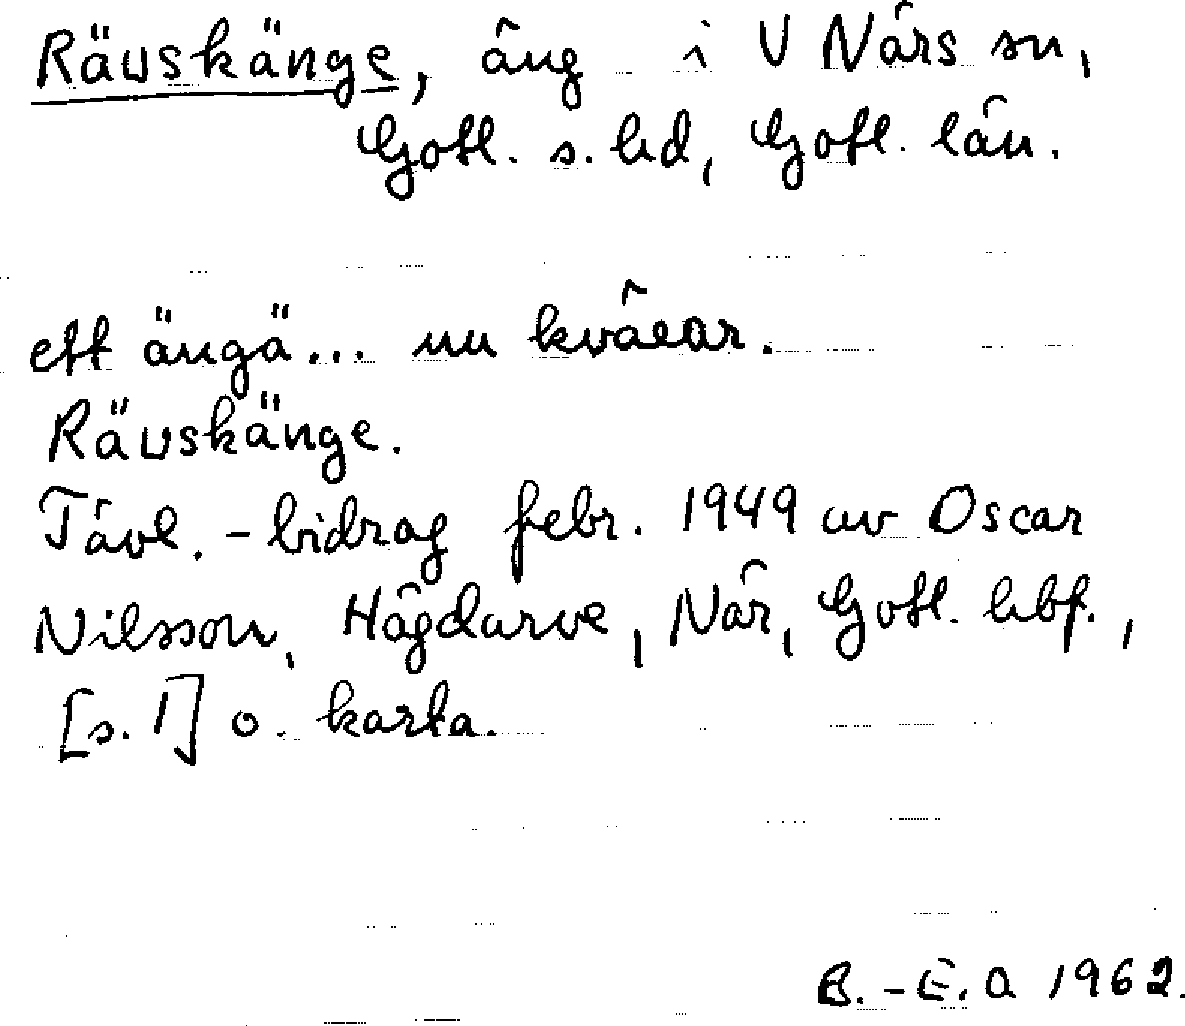 Rävskänge, äng i V Närs sn,
Gotl. s. hd, Gotl. län.
ett ängä... nu kvarar.
Rävskänge.
Tävl.-bidrag febr. 1949 av Oscar
Nilsson, Hägdarve, När, Gotl. hbf.,
[s. 1] o. karta.
B.-E. A 1962.